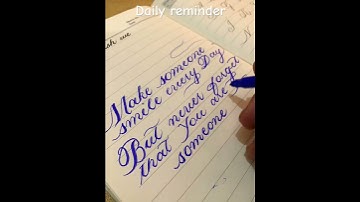 Daily reminder
Make someone
smile every Day
But never forget
that You are
someone